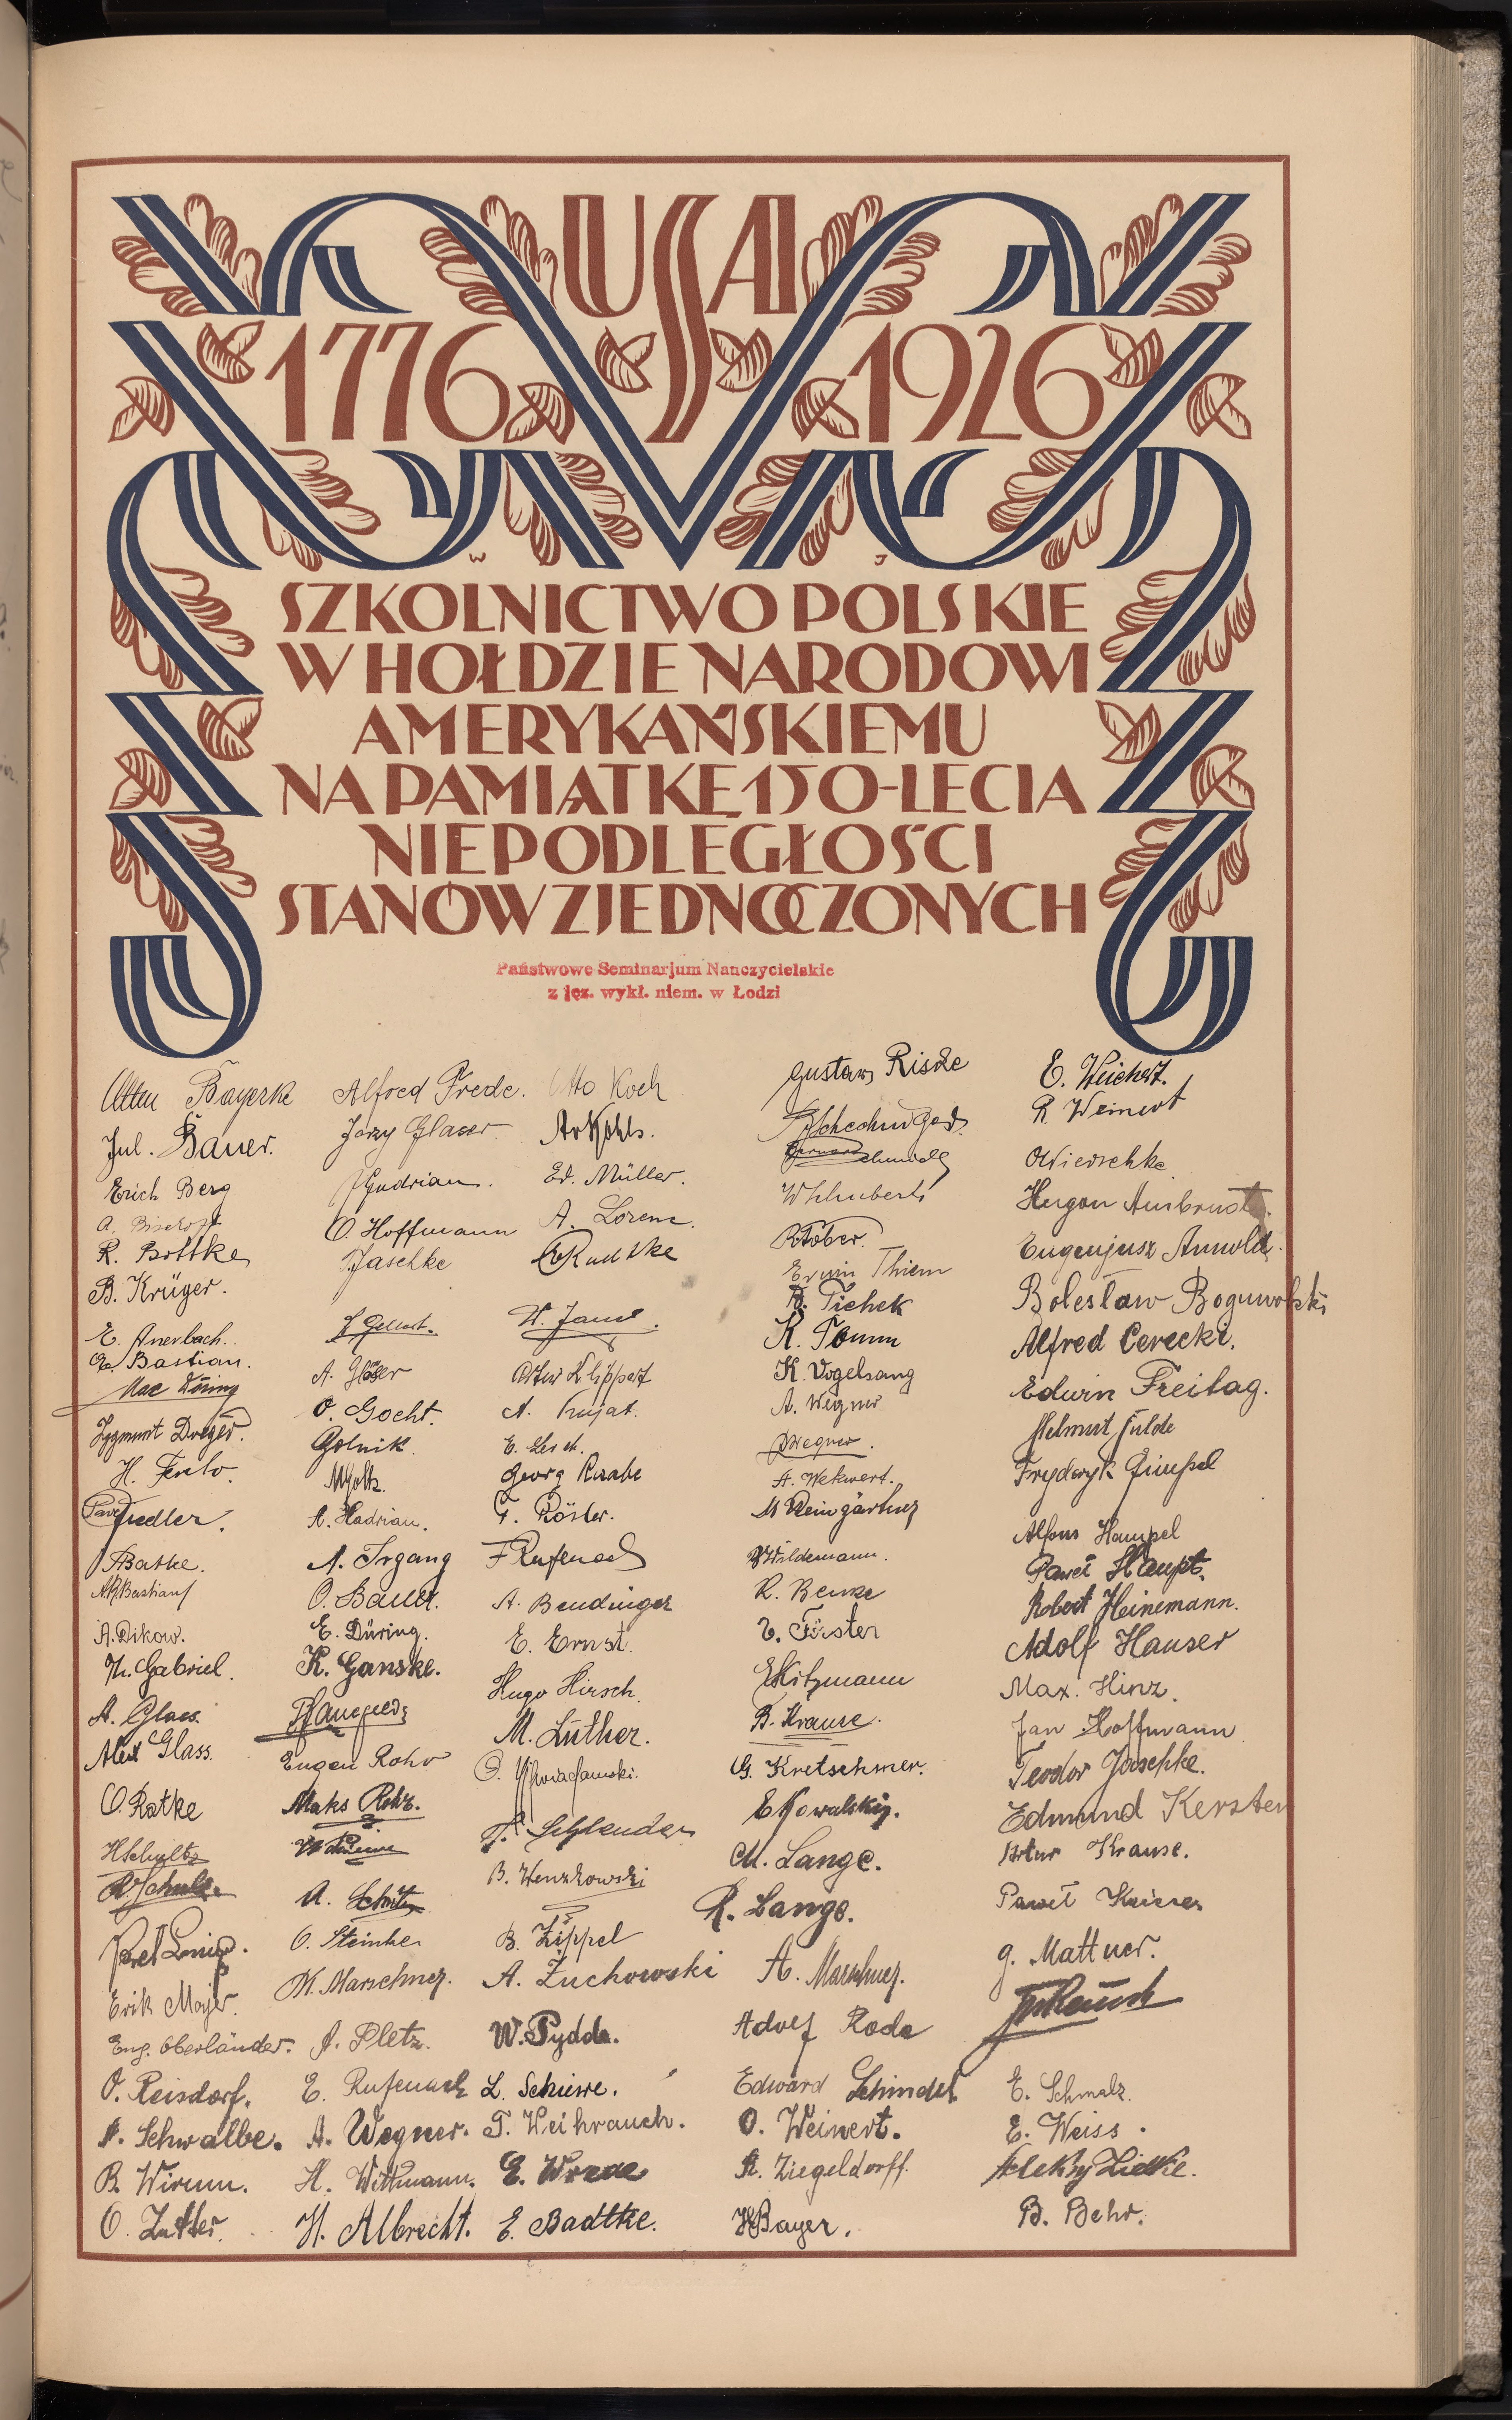 USA
1776 1926
W J
SZKOLNICTWO POLSKIE
W HOŁDZIE NARODOWI
AMERYKAŃSKIEMU
NA PAMIĄTKĘ 150-LECIA
NIEPODLEGŁOŚCI
STANÓW ZJEDNOCZONYCH
Państwowe Seminarjum Nauczycielskie
z jęz. wykł. niem. w Łodzi
Bayerke
Jul. Bauer.
Erich Berg
A. Bischoff
R. Bottke
B. Krüger.
E. Auerbach.
Bastian.
Max Döring
Zygmunt Dreger.
H.
Fiedler.
Batke.
A.R. Bastian
A. Dikow.
Gabriel.
A. Glass.
Alex Glass.
O. Ratke
H Schultz
Schulz
Erik Majer.
Eug. Oberländer.
O. Reisdorf.
A. Schwalbe.
B. Wirum.
O. Zutter.
Alfred Frede.
Jerzy Glaser.
Gudrian.
O. Hoffmann
Jaschke
A. Gläser
O. Gocht.
Golnik.
A. Hadrian.
A. Irgang
O. Bauer.
E. Düring.
K. Ganske.
Eugen Rohr
Maks Rohr.
A. Schütz
O. Steinke
M. Marschner.
J. Pletz.
E. Rufenach
A. Wegner.
H. Wittmann.
H. Albrecht.
Otto Koch
Ed. Müller.
A. Lorenc.
Radtke
Artur Klippert
A. Kujat.
E. Lesch.
Georg Raabe
T. Röster.
F Rufenach
A. Bendinger
E. Ernst.
Hugo Hirsch.
M. Luther.
Schlender
B. Wenzkowski
B. Zippel
A. Żuchowski
W. Pydde.
L. Schiewe.
T. Weihrauch.
E. Wrede
E. Badtke.
Gustaw Riske
Schmidt
R Tober.
Erwin Thiem
R. Tichek
R. Tomm
K. Vogelsang
A. Wegner
Wegner.
A. Wekwert.
M Weingärtner
Wildemann.
R. Benke
E. Förster
E Kitzmann
B. Krause.
G. Kretschmer.
E Kowalski.
M. Lange.
R. Lange.
A. Marschner.
Adolf Rode
Edward Schindel
O. Weinert.
A. Ziegeldorff.
H Bayer.
E. Weichert.
R. Weinert
O Wierschke
Hugon Armbrust.
Eugenjusz Arnold.
Bolesław Bogumolski
Alfred Cerecki.
Edwin Freitag.
Helmut Fulde
Fryderyk Gimpel
Alfons Hampel
Paweł Haupt.
Robert Heinemann.
Adolf Hauser
Max. Hinz.
Jan Hoffmann
Teodor Jaschke.
Edmund Kersten
Artur Krause.
Paweł
G. Mattner.
E. Schmalz.
E. Weiss.
Aleksy Lidtke.
B. Behr.